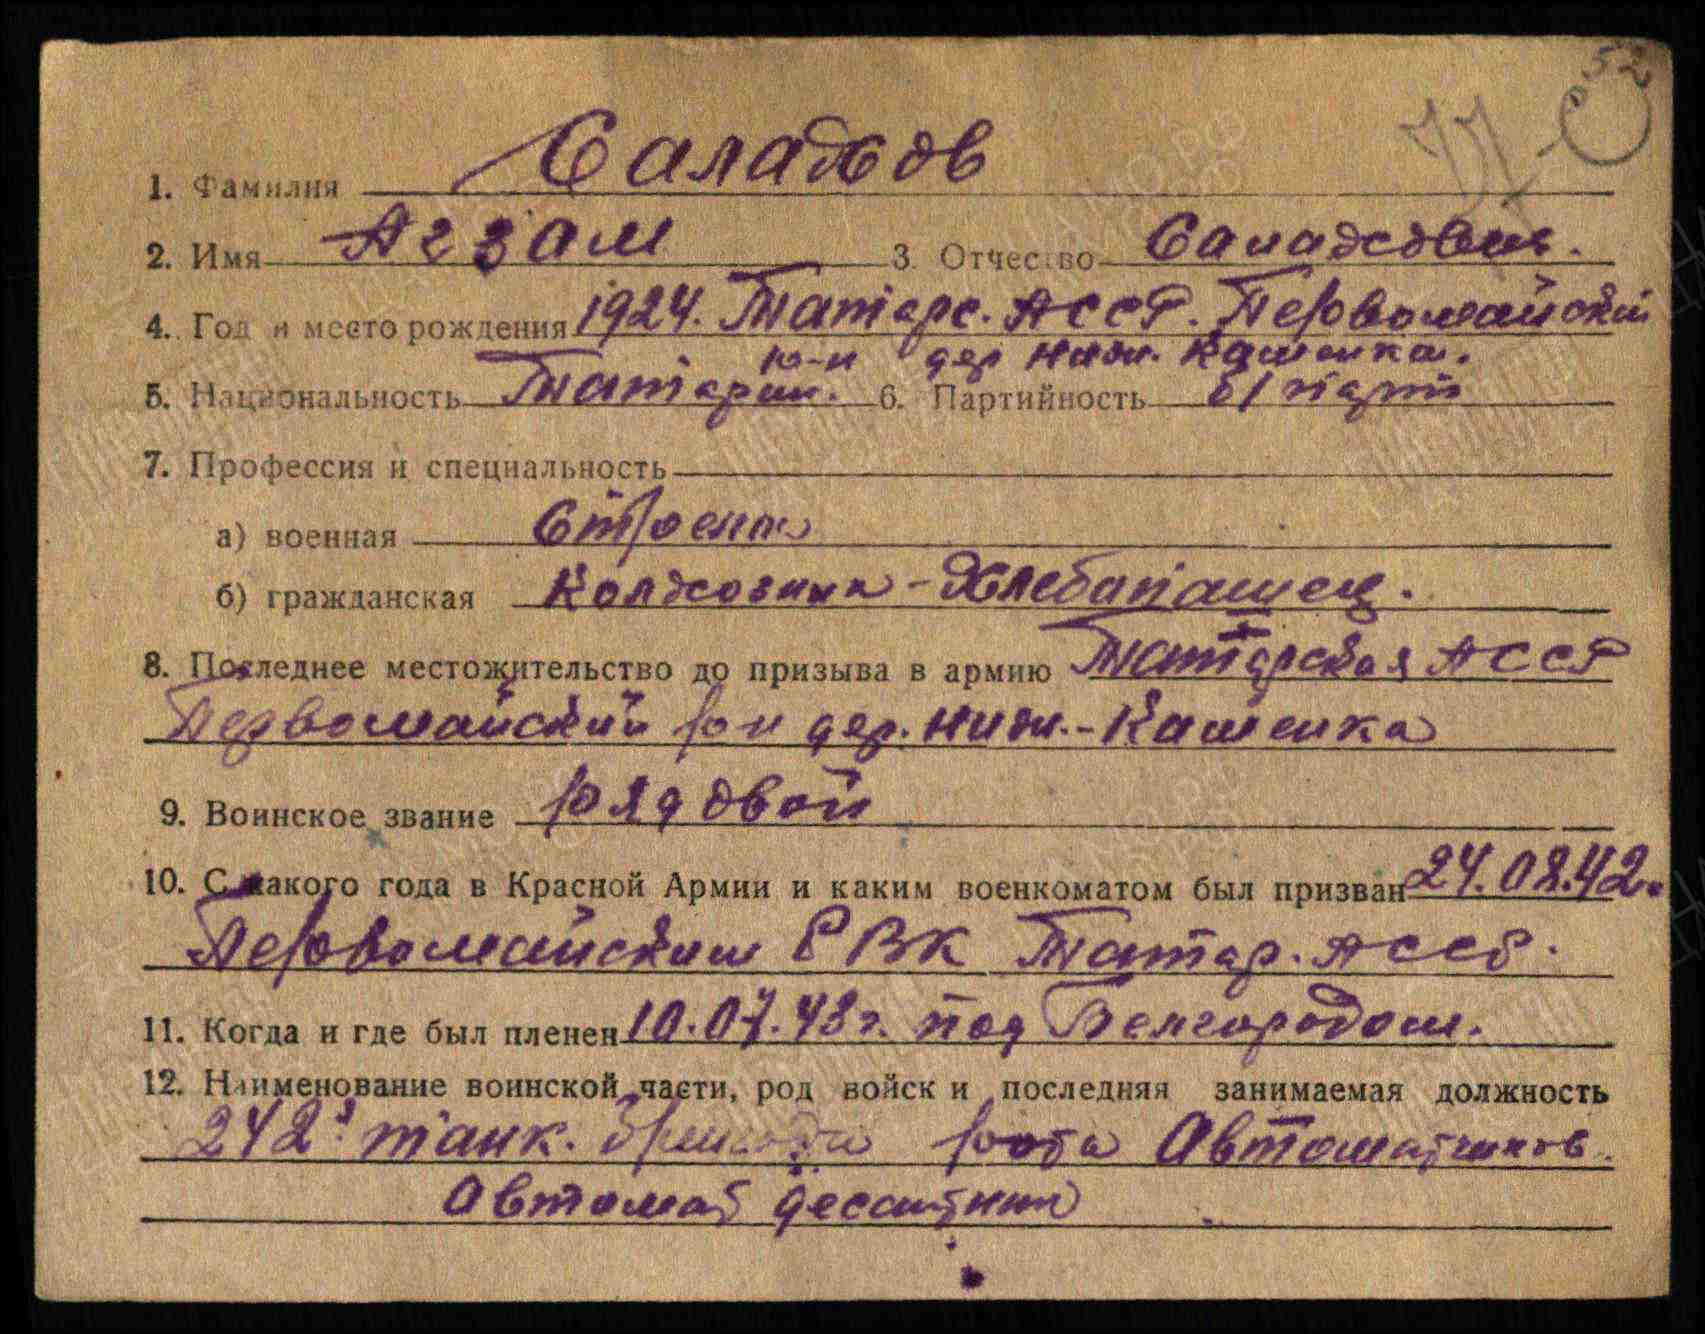 52
1. Фамилия Саладжов
2. Имя Агзам 3. Отчество Саладжович.
4. Год и место рождения 1924. Татарс. АССР. Первомайский
ро-н дер Ниж. Каменка.
5. Национальность Татарин. 6. Партийность б/парт
7. Профессия и специальность
а) военная Строевик
б) гражданская Колхозник - Хлебапашец.
8. Последнее местожительство до призыва в армию Татарская АССР
Первомайский ро-н дер. Ниж.-Каменка
9. Воинское звание Рядовой
10. С какого года в Красной Армии и каким военкоматом был призван 24.08.42.
Первомайским РВК Татар. АССР.
11. Когда и где был пленен 10.07.43 г. под Белгородом.
12. Наименование воинской части, род войск и последняя занимаемая должность
242я танк. бригада рота Автоматчиков.
Автомат десантник